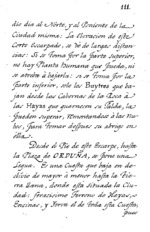 111.
dio dia al Norte, y al Poniente de la
Ciudad misma: La elevacion de este
Corte escarpado, se vé de largas distan-
cias: Si se toma por la parte superior,
no hay Planta humana que pueda, ni
se atreba á bajarla: si se toma por la
parte inferior, solo los Buytres que ba-
jan desde las Cabernas de la Roca á
las Hayas que guarnecen su Falda, la
pueden superar, remontandose á las Nu-
bes, para tomar despues su abrigo en
ella.
Desde el Pie de este Escarpe, hasta
la Plaza de ORDUÑA, se forma una
Legua. Es una Cuesta que baja en de-
clive de mayor á menor hasta la tie-
rra llana, donde esta situada la Ciu-
dad: ferocisimo Terreno de Hayas, y
Encinas, y Peñas el de toda esta Cuesta,